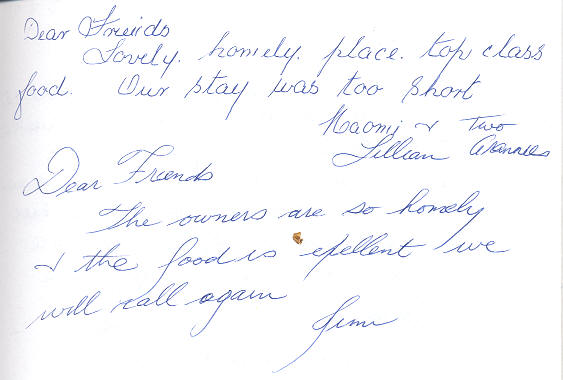 Dear Friends
Lovely. homely. place. top class
food. Our stay was too short
Naomi & Two
Lillian Grannies
Dear Friends
The owners are so homely
& the food is exellent we
will call again